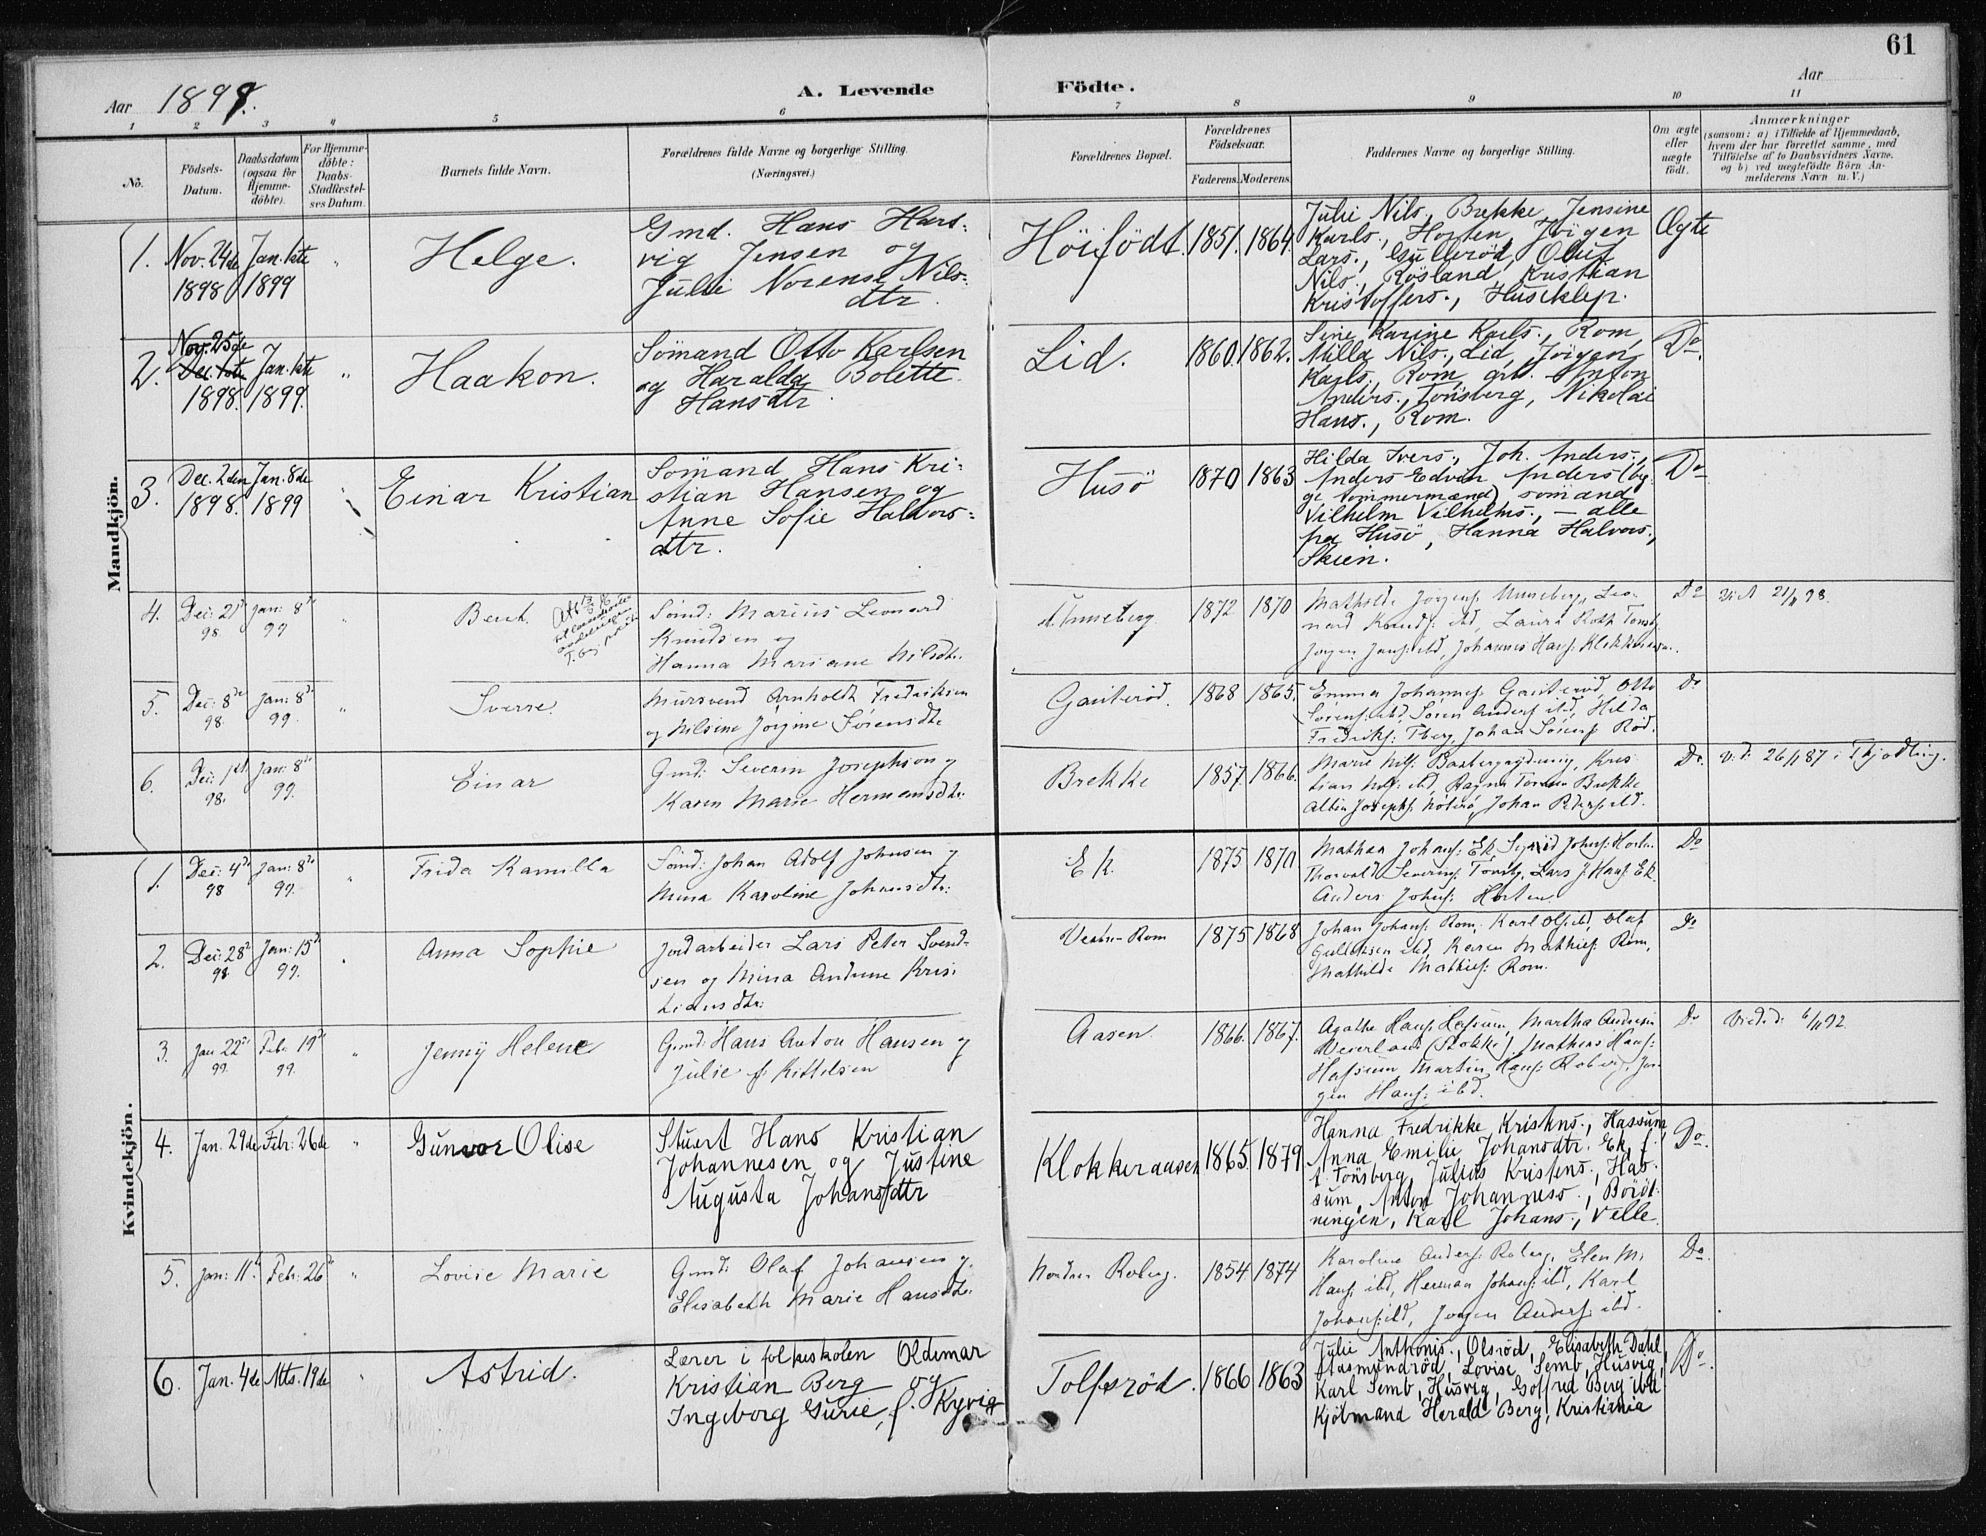 61
Aar 1899.
A. Levende
Födte.
Aar
1 2 3 4 5 6 7 8 9 10 11
No.
Födsels-
Datum.
Daabsdatum
(ogsaa for
Hjemme-
döbte).
For Hjemme-
döbte:
Daabs-
Stadfæstel-
ses Datum.
Barnets fulde Navn.
Forældrenes fulde Navne og borgerlige Stilling.
(Næringsvei.)
Forældrenes Bopæl.
Forældrenes
Födselsaar.
Faderens. Moderens.
Faddernes Navne og borgerlige Stilling.
Om ægte
eller
uægte
födt.
Anmærkninger
(saasom: a) i Tilfælde af Hjemmedaab,
hvem der har forrettet samme, med
Tilföielse af to Daabsvidners Navne,
og b) ved uægtefödte Börn An-
melderens Navn m. V.)
Mandkjön.
1.
Nov. 24de
1898
Jan. 1ste
1899
"
Helge.
Gmd. Hans Hart-
vig Jensen og
Julie Norense Nils-
dtr.
Höifödt.
1851. 1864.
Julie Nils., Brekke, Jensine
Karls., Horten, Jörgen
Lars., Gulleröd, Oluf
Nils., Rösland, Kristian
Kristoffers., Huseklep.
Ægte
2.
Nov. 25de
Dec. 1ste
1898.
Jan. 1ste
1899.
"
Haakon.
Sömand Otto Karlsen
og Haralda Bolette
Hansdtr.
Lid.
1860. 1862.
Sine Karine Karls., Rom,
Milla Nils., Lid, Jörgen
Karls., Rom, arb. Anton
Anders., Tönsberg, Nikolai
Hans., Rom.
Do.
3.
Dec. 2den
1898.
Jan. 8de
1899
"
Einar Kristian
Sömand Hans Kri-
stian Hansen og
Anne Sofie Halvors-
dtr.
Husö
1870 1863
Hilda Ivers., Joh. Anders.,
Anders Edvin Anders. (beg-
ge tömmermænd), sömand
Vilhelm Vilhelms., – alle
paa Husö, Hanna Halvors.,
Skien.
Do
4.
Dec: 21de
98.
Jan: 8de
99
"
Bernt.
Sömd: Marius Leonard
Knudsen og
Hanna Mariane Nilsdtr.
Unneberg
1872 1870
Mathilde Jörgens: Unneberg, Leo-
nard Knuds: ibd, Laura Roth Tönsb,
Jörgen Jans: ibd, Johannes Hans: Klokkeraasen.
Do
5.
Dec: 8de
98.
Jan: 8de
99.
"
Sverre.
Mursvend Arnholdt Fredriksen
og Nilsine Jörgine Sörensdtr.
Gauteröd.
1868 1865.
Emma Johannes: Gauteröd, Otto
Sörens: ibd, Sören Anders: ibd, Hilda
Fredriks: Tberg, Johan Sörens: Röd.
Do
6.
Dec: 1ste
98.
Jan: 8de
99.
Einar
Gmd: Severin Josephsen og
Karen Marie Hermensdtr.
Brekke
1857. 1866.
Do.
Vid: 26/1 87 i Tjödling.
Kvindekjön.
1.
Dec: 4de
98
Jan: 8de
99.
"
Frida Kamilla
Sömd: Johan Adolf Johnsen og
Mina Karoline Johansdtr:
Ek.
1875 1870
Mathea Johans: Ek, Sigrid Johns: Horten
Thorvald Severins: Tönsb, Lars J. Hans: Ek.
Anders Johns: Horten.
Do
2.
Dec: 28de
98.
Jan: 15de
99.
"
Anna Sophie
Jordarbeider Lars Peter Svend-
sen og Mina Andrine Kris-
tiansdtr:
Vestre Rom
1875 1868
Johan Johans: Rom, Karl Ols: ibd, Olaf
Guldiksen ibd, Karen Mathis: Rom,
Mathilde Mathis: Rom.
Do
3.
Jan 22de
99.
Feb: 19de
99.
"
Jenny Helene
Gmd: Hans Anton Hansen og
Julie f. Kittelsen
Aasen.
1866. 1867.
Agathe Hans: Hassum, Martha Andersen
(Stokke), Mathias Hans:
Hassum, Martin Hans: Roberg, Jör-
gen Hans: ibd.
Do
Vied. d: 6/11 92.
4.
Jan. 29de
Febr. 26de
"
Gunvor Olise
Stuert Hans Kristian
Johannesen og Justine
Augusta Johansdtr
Klokkeraasen
1865. 1879.
Hanna Fredrikke Kristens., Hassum,
Anna Emilie Johansdtr. Ek, f.
t. Tönsberg, Julius Kristens., Has-
sum, Anton Johanness.,
ningen, Karl Johans., Velle.
Do.
5.
Jan: 11te
Feb: 26de
"
Lovise Marie
Gmd: Olaf Johansen og
Elisabeth Marie Hansdtr.
Nordre Roberg.
1854. 1874
Karoline Anders: Roberg, Elen M.
Hans: ibd, Herman Johans: ibd, Karl
Johans: ibd, Jörgen Anders: ibd.
Do.
6.
Jan. 4de
Mts. 19de
"
Astrid.
Lærer i folkeskolen Oldemar
Kristian Berg og
Ingeborg Gurie, f. Kyvig
Tolfsröd.
1866 1863
Julie Anthonis., Olsröd, Elisabeth Dahl,
Aasmundröd, Lovise Semb, Husvig,
Karl Semb, Husvig, Gotfred Berg ibd
Kjöbmand Herald Berg, Kristiania
Do.